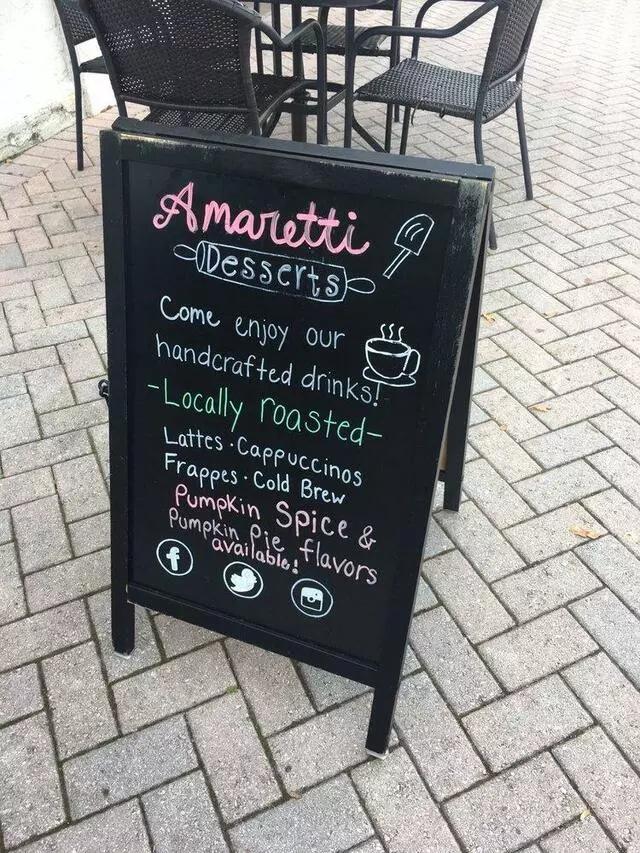 Amaretti
Desserts
Come enjoy our
handcrafted drinks!
-Locally roasted-
Lattes · Cappuccinos
Frappes · Cold Brew
Pumpkin Spice &
Pumpkin Pie flavors
available!
f